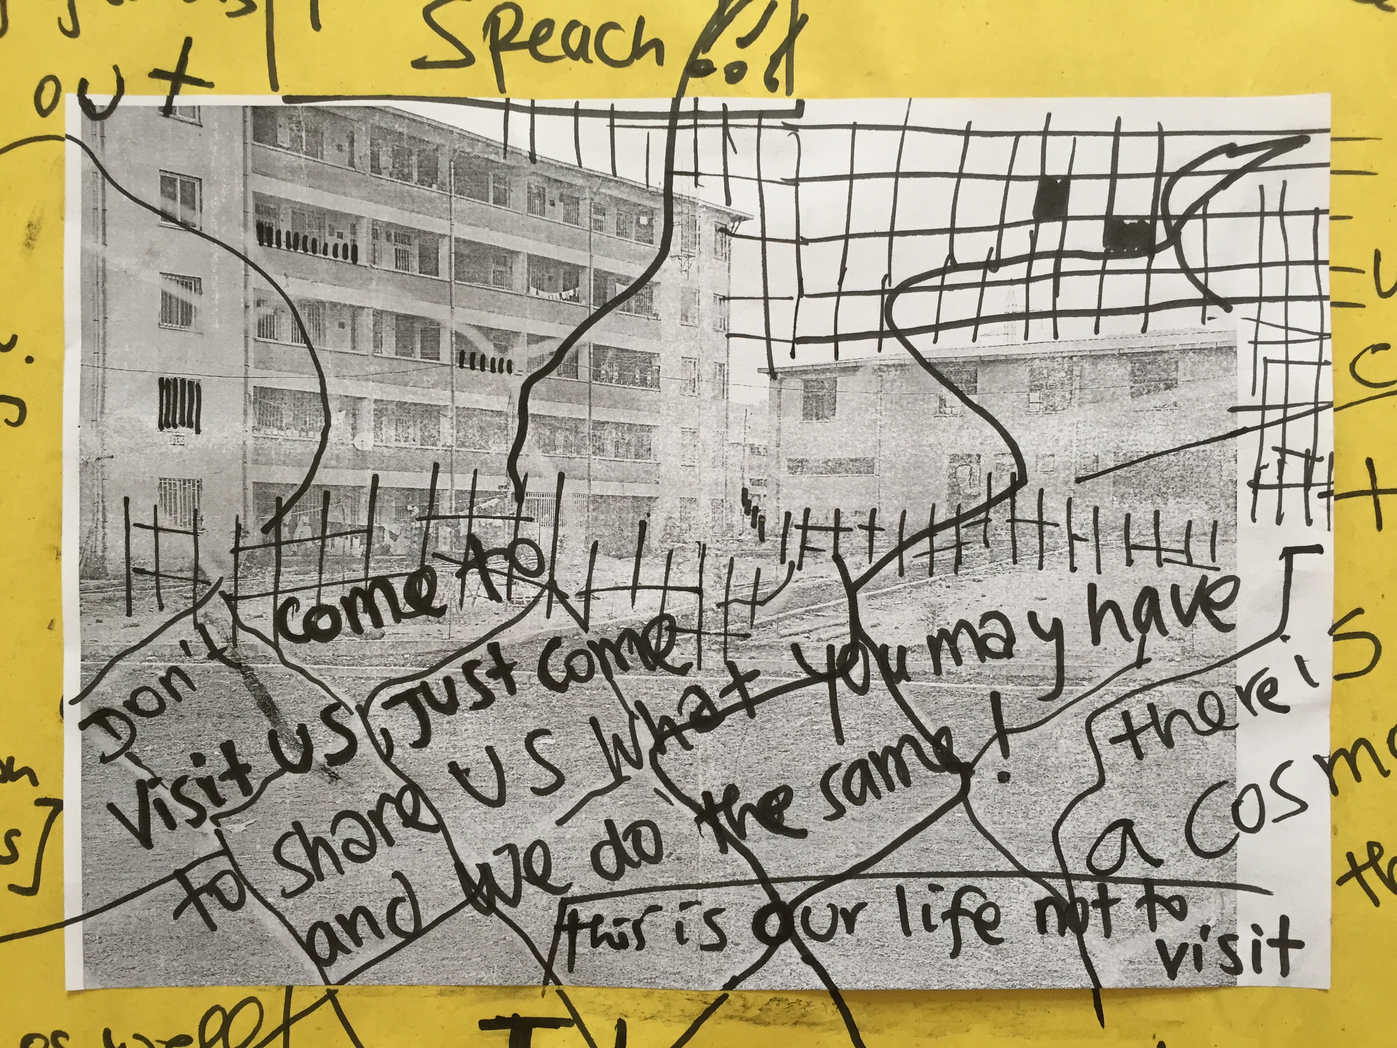 out
Speach !!
Don't come to
visit us, just come
to share us what you may have
and we do the same!
there is
a cosmo
this is our life not to
visit
as well